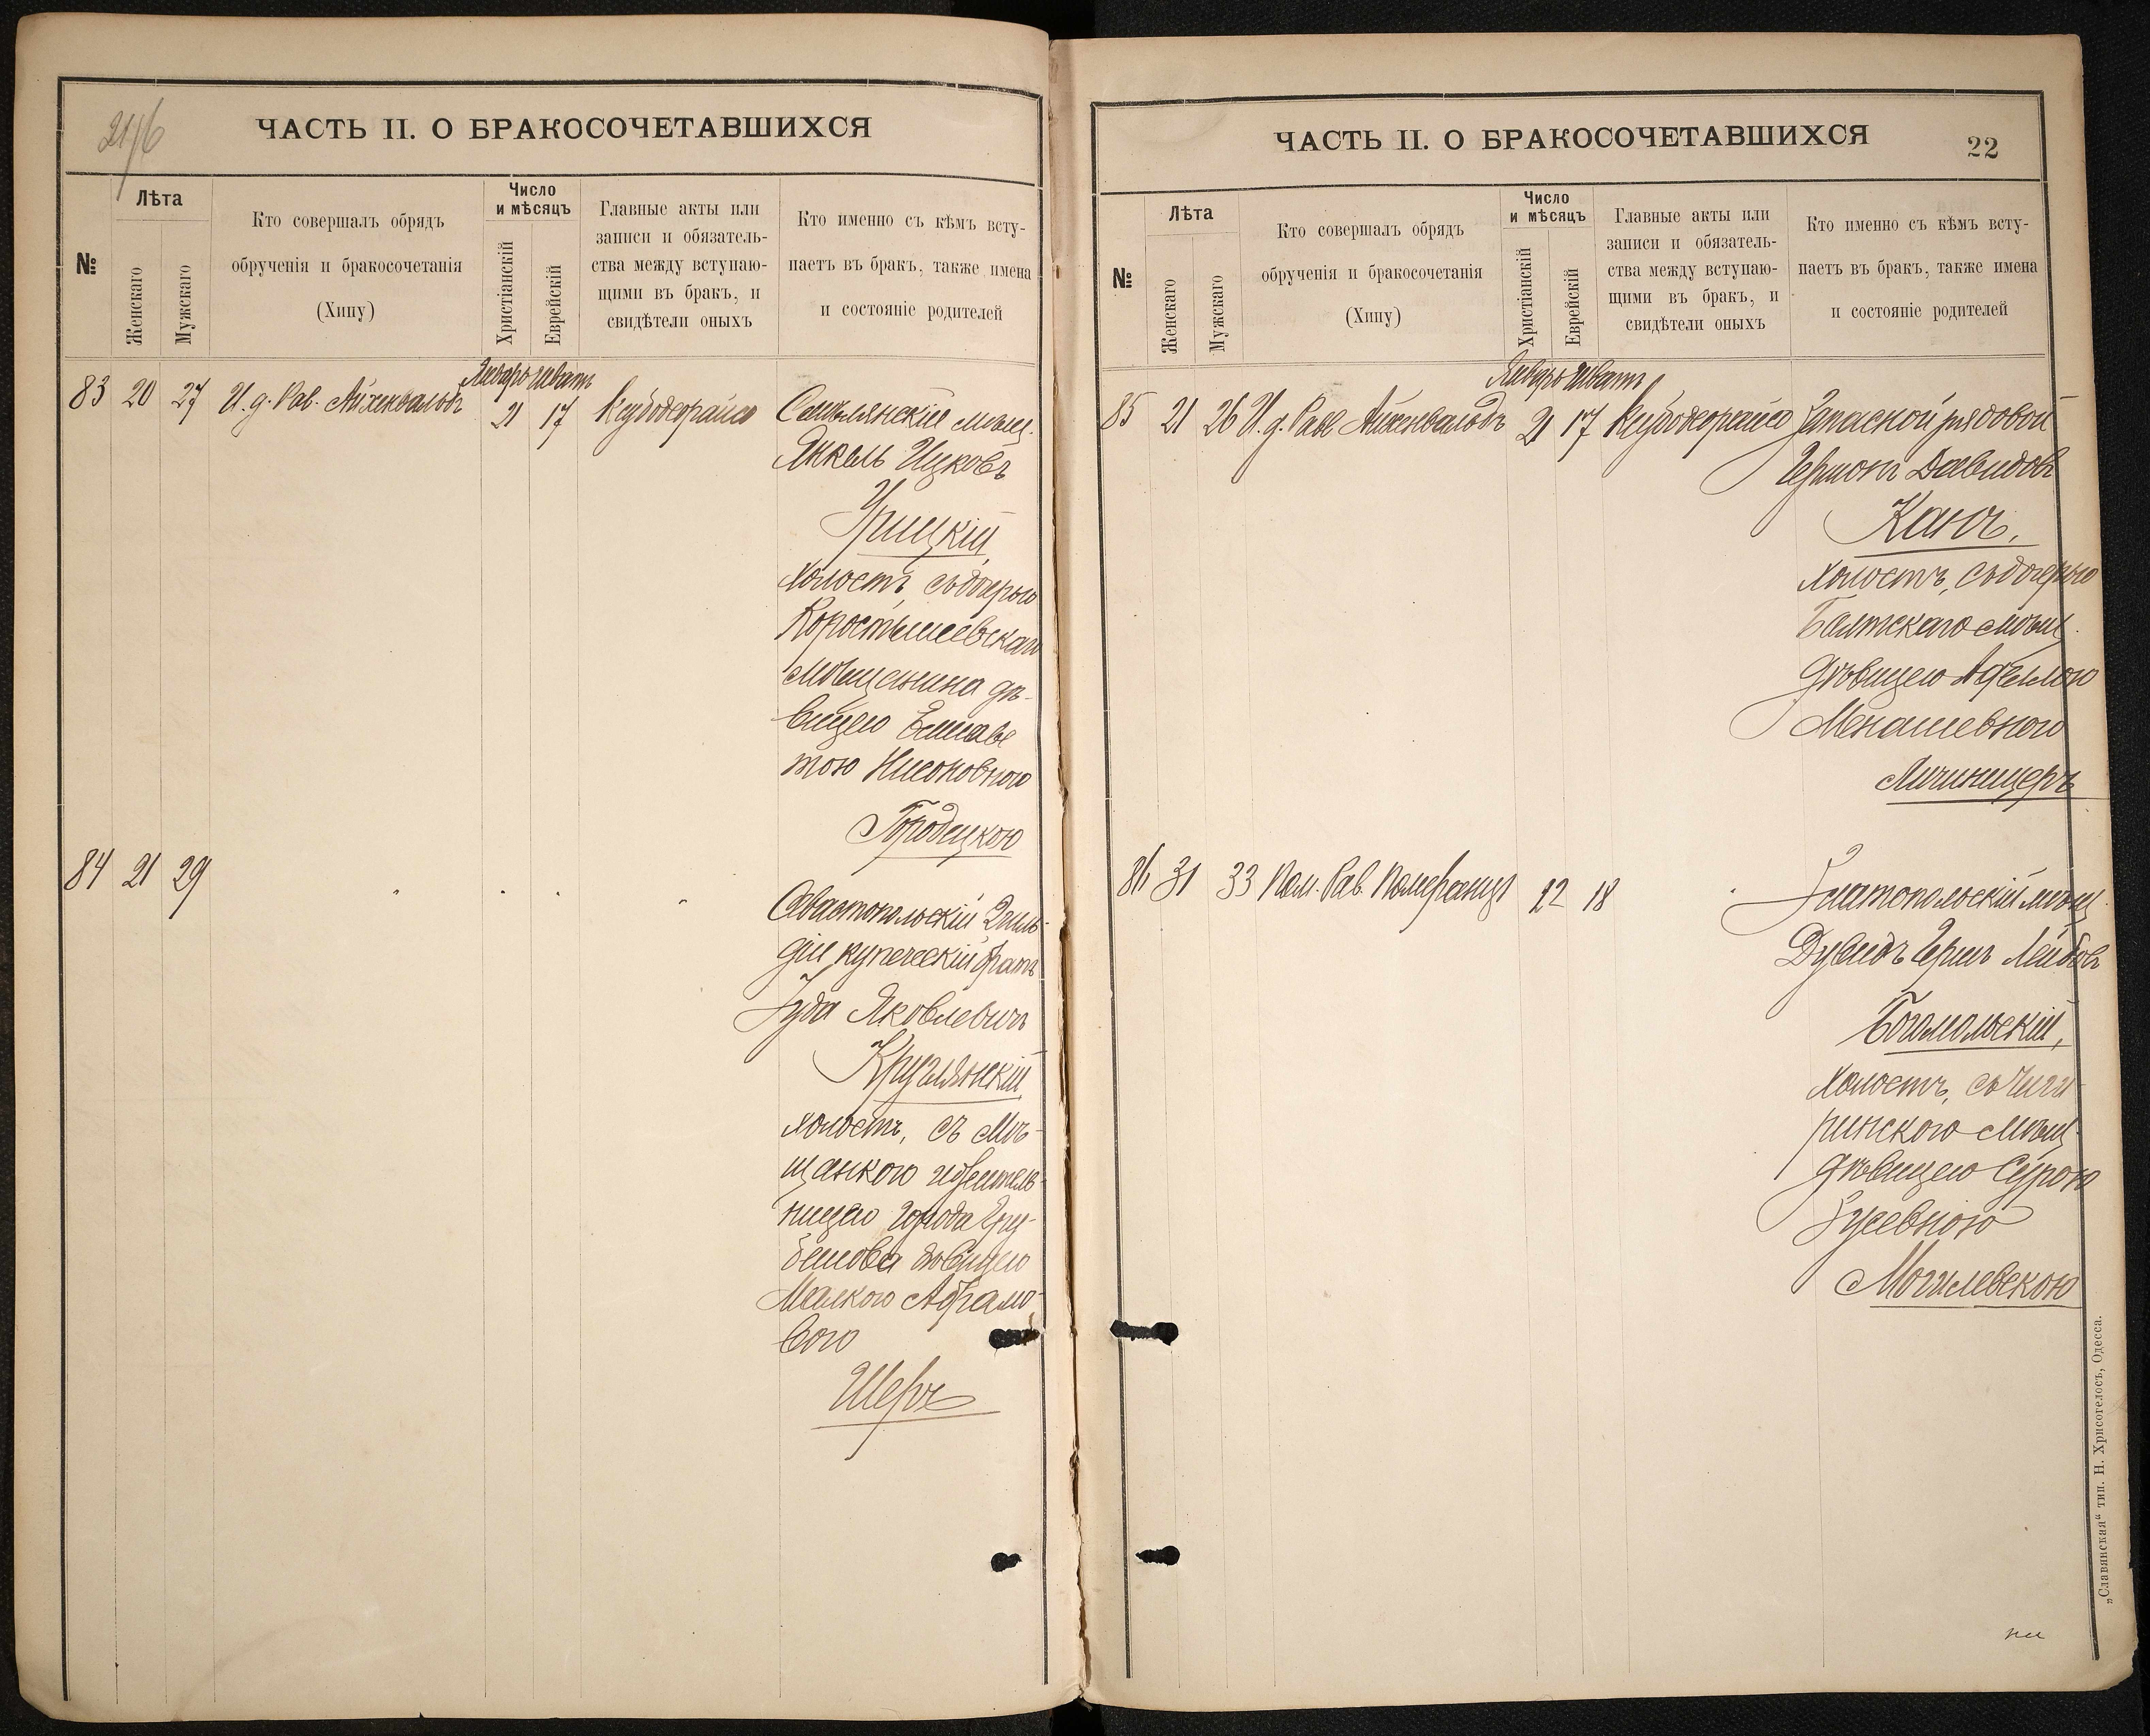 21/6
ЧАСТЬ II. О БРАКОСОЧЕТАВШИХСЯ
№
Лѣта
Женскаго
Мужскаго
Кто совершалъ обрядъ
обрученія и бракосочетанія
(Хипу)
Число
и мѣсяцъ
Христіанскій
Еврейскій
Главные акты или
записи и обязатель-
ства между вступаю-
щими въ бракъ, и
свидѣтели оныхъ
Кто именно съ кѣмъ всту-
паетъ въ бракъ, также имена
и состояніе родителей
Январь Шватъ
83 20 27 И. д. Рав. Айхенвальдъ 21 17 Смѣлянскій мѣщ.
Янкель Ицковъ
Урицкій,
холостъ, съ дочерью
Коростышевскаго
мѣщанина дѣ-
вицею Елисаве
тою Нисоновною
Городецкою
84 21 29
Севастопольскій 2 гиль-
діи купеческій братъ
Іуда Яковлевичъ
Круглянскій
холостъ, съ мѣ-
щанкою
ницею города Гру-
бешова дѣвицею
Малкою Абрамо-
вою
Шеръ
ЧАСТЬ II. О БРАКОСОЧЕТАВШИХСЯ
22
№
Лѣта
Женскаго
Мужскаго
Кто совершалъ обрядъ
обрученія и бракосочетанія
(Хипу)
Число
и мѣсяцъ
Христіанскій
Еврейскій
Главные акты или
записи и обязатель-
ства между вступаю-
щими въ бракъ, и
свидѣтели оныхъ
Кто именно съ кѣмъ всту-
паетъ въ бракъ, также имена
и состояніе родителей
Январь Шватъ
85 21 26 И. д. Рав Айхенвальдъ 21 17 Запасной рядовой
Гершонъ Давидовъ
Канъ,
холостъ, съ дочерью
Балтскаго мѣщ.
дѣвицею Аделлою
Менашевною
Личиницеръ
86 31 33 Пом. Рав. Померанцъ 22 18 Златопольскій мѣщ.
Дувидъ Гершъ Лейбовъ
Богопольскій,
холостъ, съ Чиги-
ринскою мѣщ.
дѣвицею Сурою
Зусевною
Могилевскою
„Славянская“ тип. Н. Хрисогелосъ, Одесса.